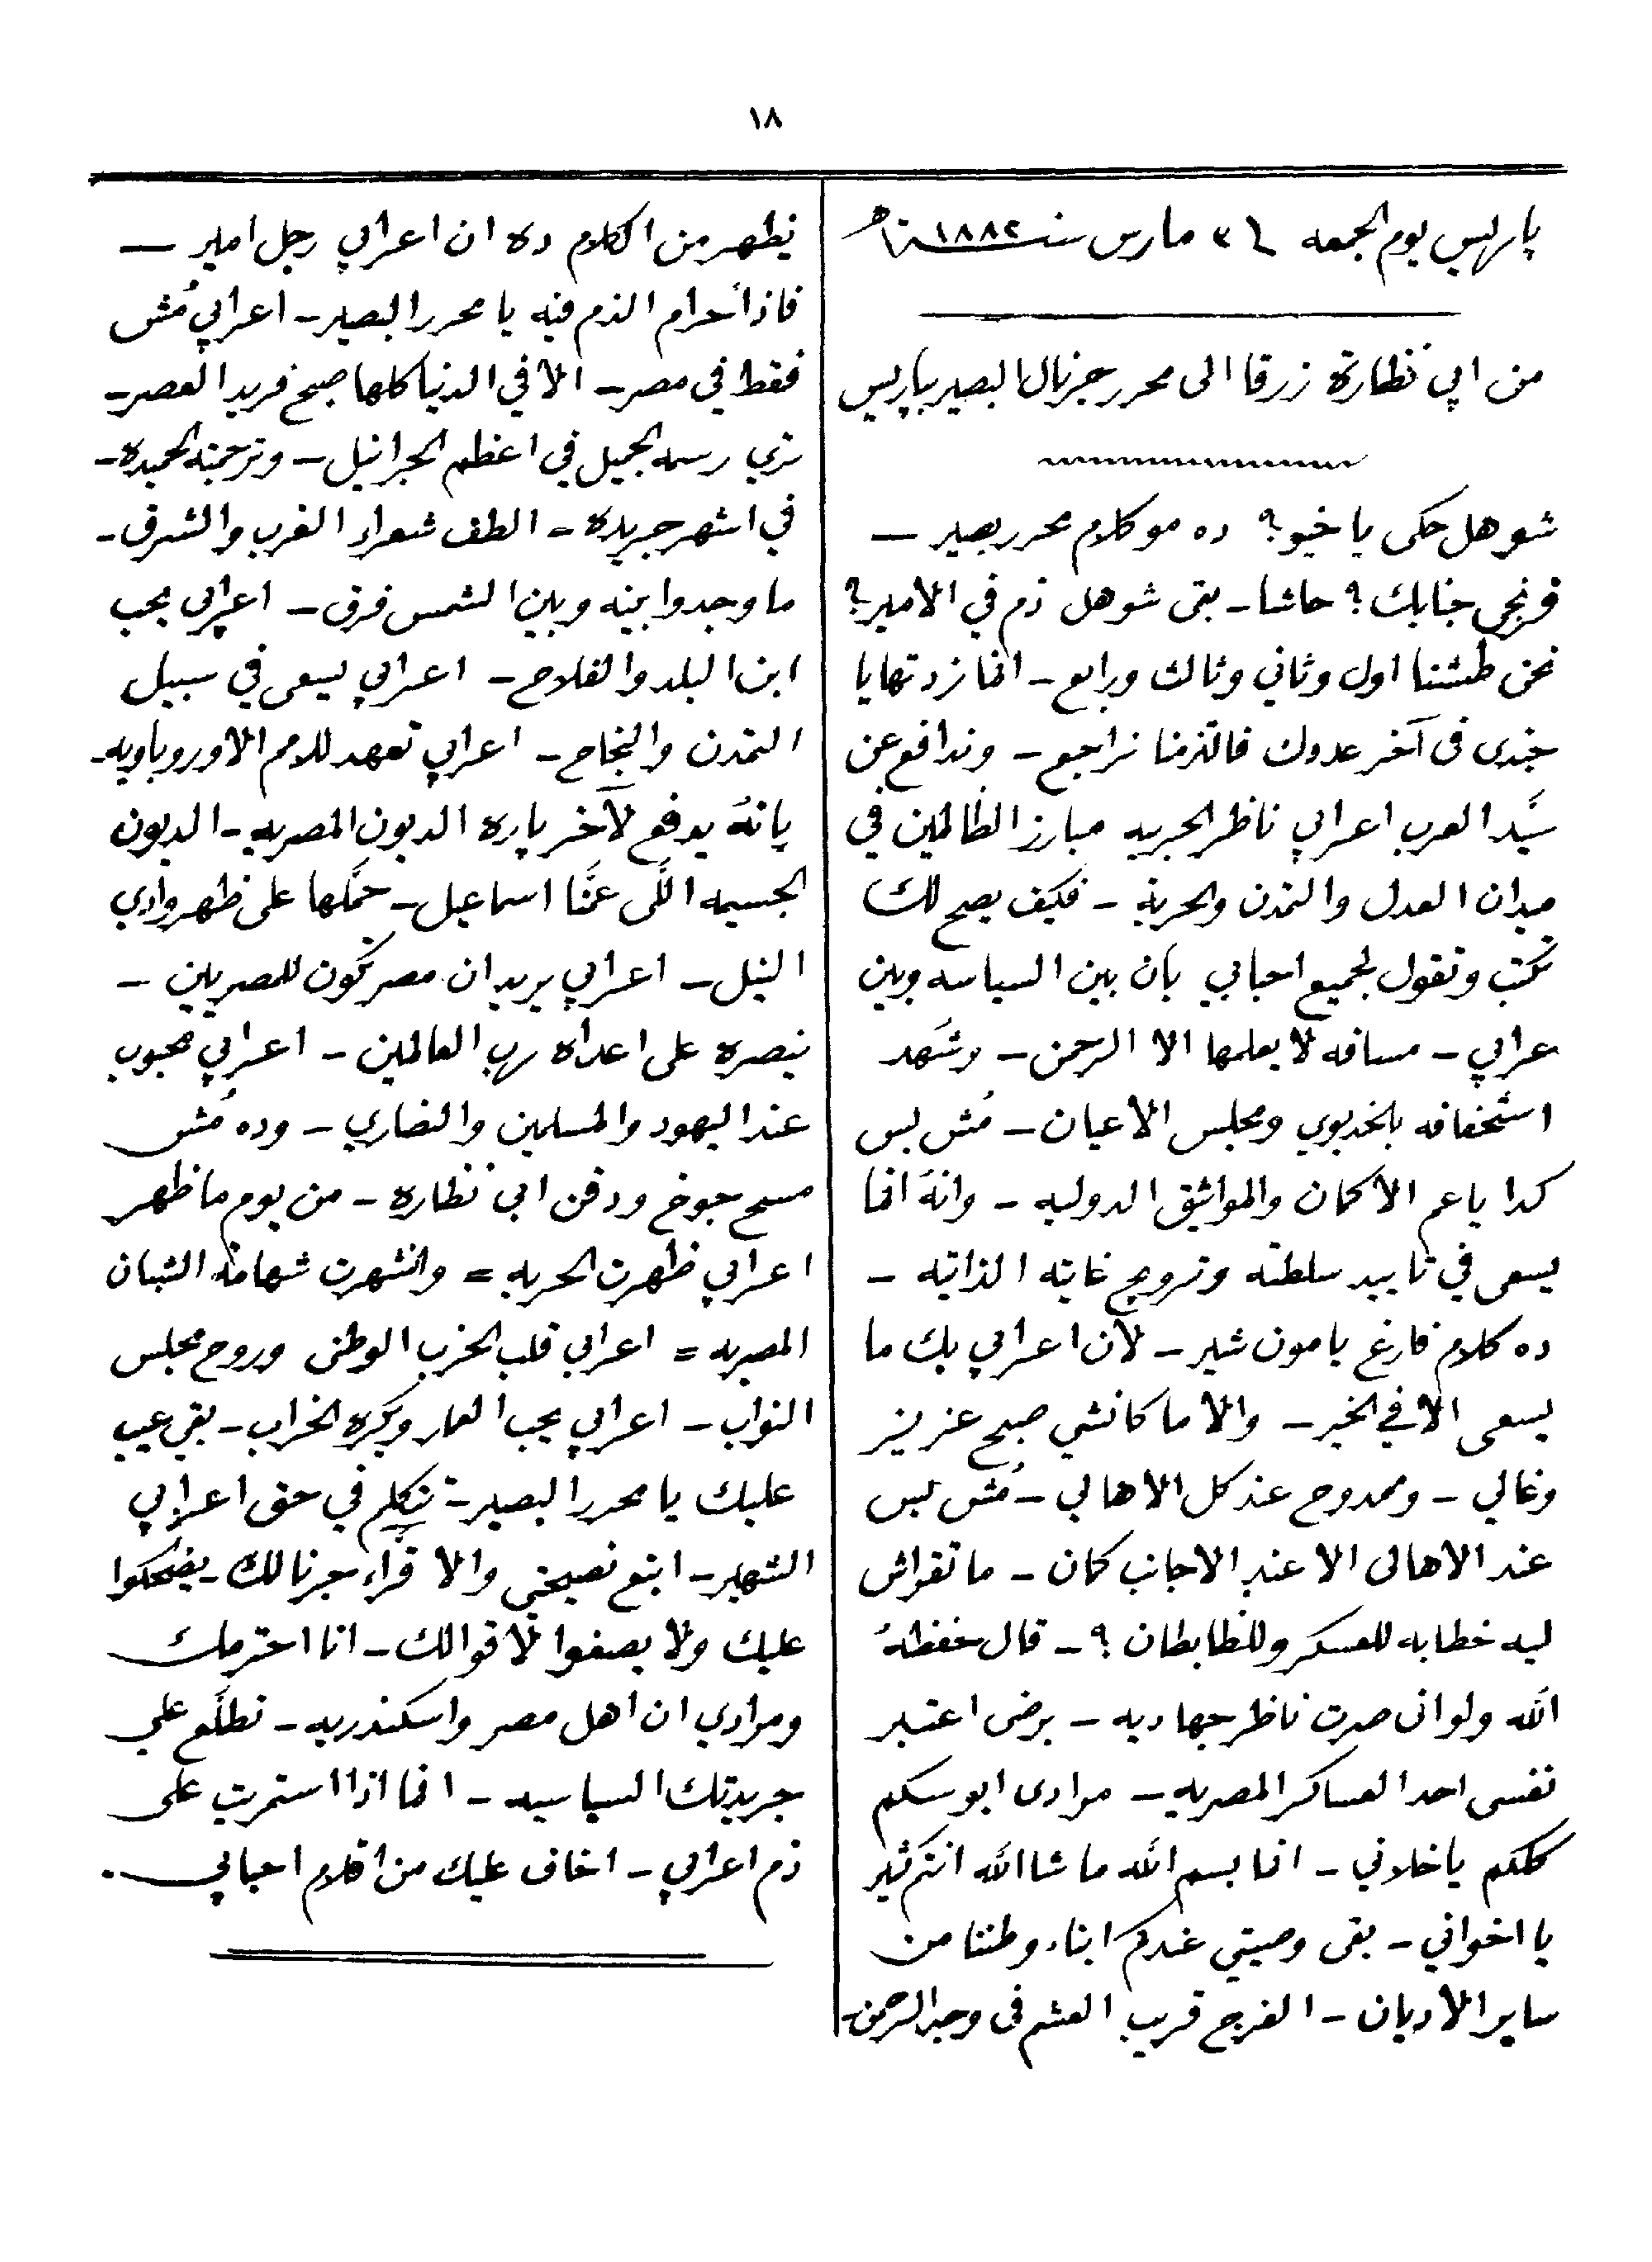 ١٨
پاريس يوم الجمعه في ٣١ مارس سنة ١٨٨٢
من ابي نظارة زرقا الى محرر جرنال البصير بپاريس
شو هل حكى يا خيو؟ ده مو كلام محرر بصير ــ
فرنجي جنابك؟ حاشا ـ بقى شو هل ذم في الامير؟
نحن طنشنا اول وثاني وثالث ورابع ـ انما زدتها يا
جندى فى آخر عددك فالتزمنا نراجع ـ وندافع عن
سيّد العرب اعرابي ناظر الحربيه مبارز الظالمين في
ميدان العدل والتمدن والحرية ـ فكيف يصح لك
تكتب وتقول لجميع احبابي بأن بين السياسه وبين
عرابي ـ مسافه لا يعلمها الا الرحمن ـ وشهد
استخفافه بالخديوي ومجلس الاعيان ـ مُش بس
كدا يا عم الا كمان والمواثيق الدوليه ـ وانهُ انما
يسعى في تاييد سلطته وترويج غايته الذاتيه ـ
ده كلام فارغ يا مون شير ـ لأن اعرابي بك ما
يسعى الا في الخير ـ والا ما كانشي صبح عزيز
وغالي ـ وممدوح عند كل الاهالي ـ مُش بس
عند الاهالى الا عند الاجانب كمان ـ ما تقراش
ليه خطابه للعسكر وللظابطان؟ ـ قال حفظهُ
الله ولو انى صرت ناظر جهاديه ـ برضى اعتبر
نفسى احد العساكر المصريه ـ مرادى ابوسكم
كلكم يا خلاني ـ انما بسم الله ما شا الله انتم كثير
يا اخواني ـ بقى وصيتي عندكم ابناء وطننا من
ساير الأديان ـ الفرج قريب العشم فى وجه الرحمن ـ
يظهر من الكلام ده ان اعرابي رجل امير ــ
فاذاً حرام الذم فيه يا محرر البصير ـ اعرابي مُش
فقط في مصر ـ الا في الدنيا كلها صبح فريد العصر ـ
ترى رسمه الجميل في اعظم الجرانيل ـ وترجمته الحميده ـ
في اشهر جريده ـ الطف شعراء الغرب والشرق ـ
ما وجدوا بينه وبين الشمس فرق ـ اعرابي يحب
ابن البلد والفلاح ـ اعرابي يسعى في سبيل
التمدن والنجاح ـ اعرابي تعهد للامم الاوروپاويه ـ
بانهُ يدفع لآخر پاره الديون المصريه ـ الديون
الجسيمه اللّى عمَّنا اسماعيل ـ حمَّلها على ظهر وادي
النيل ـ اعرابي يريد ان مصر تكون للمصريين ـ
ينصره على اعداه رب العالمين ـ اعرابي محبوب
عند اليهود والمسلمين والنصاري ـ وده مُش
مسح جوخ ودقن ابي نظاره ـ من يوم ما ظهر
اعرابي ظهرت الحريه = وانشهرت شهامة الشبان
المصريه = اعرابي قلب الحزب الوطنى وروح مجلس
النواب ـ اعرابي يحب العمار ويكره الخراب ـ بقى عيب
عليك يا محرر البصير ـ تتكلم في حق اعرابي
الشهير ـ اتبع نصيحتي والا قراء جرنالك ـ يضحكوا
عليك ولا يصغوا لأقوالك ـ انا احترمك
ومرادي ان اهل مصر واسكندريه ـ تطلّع على
جريدتك السياسيه ـ انما اذا استمريت على
ذم اعرابي ـ اخاف عليك من اقلام احبابي .